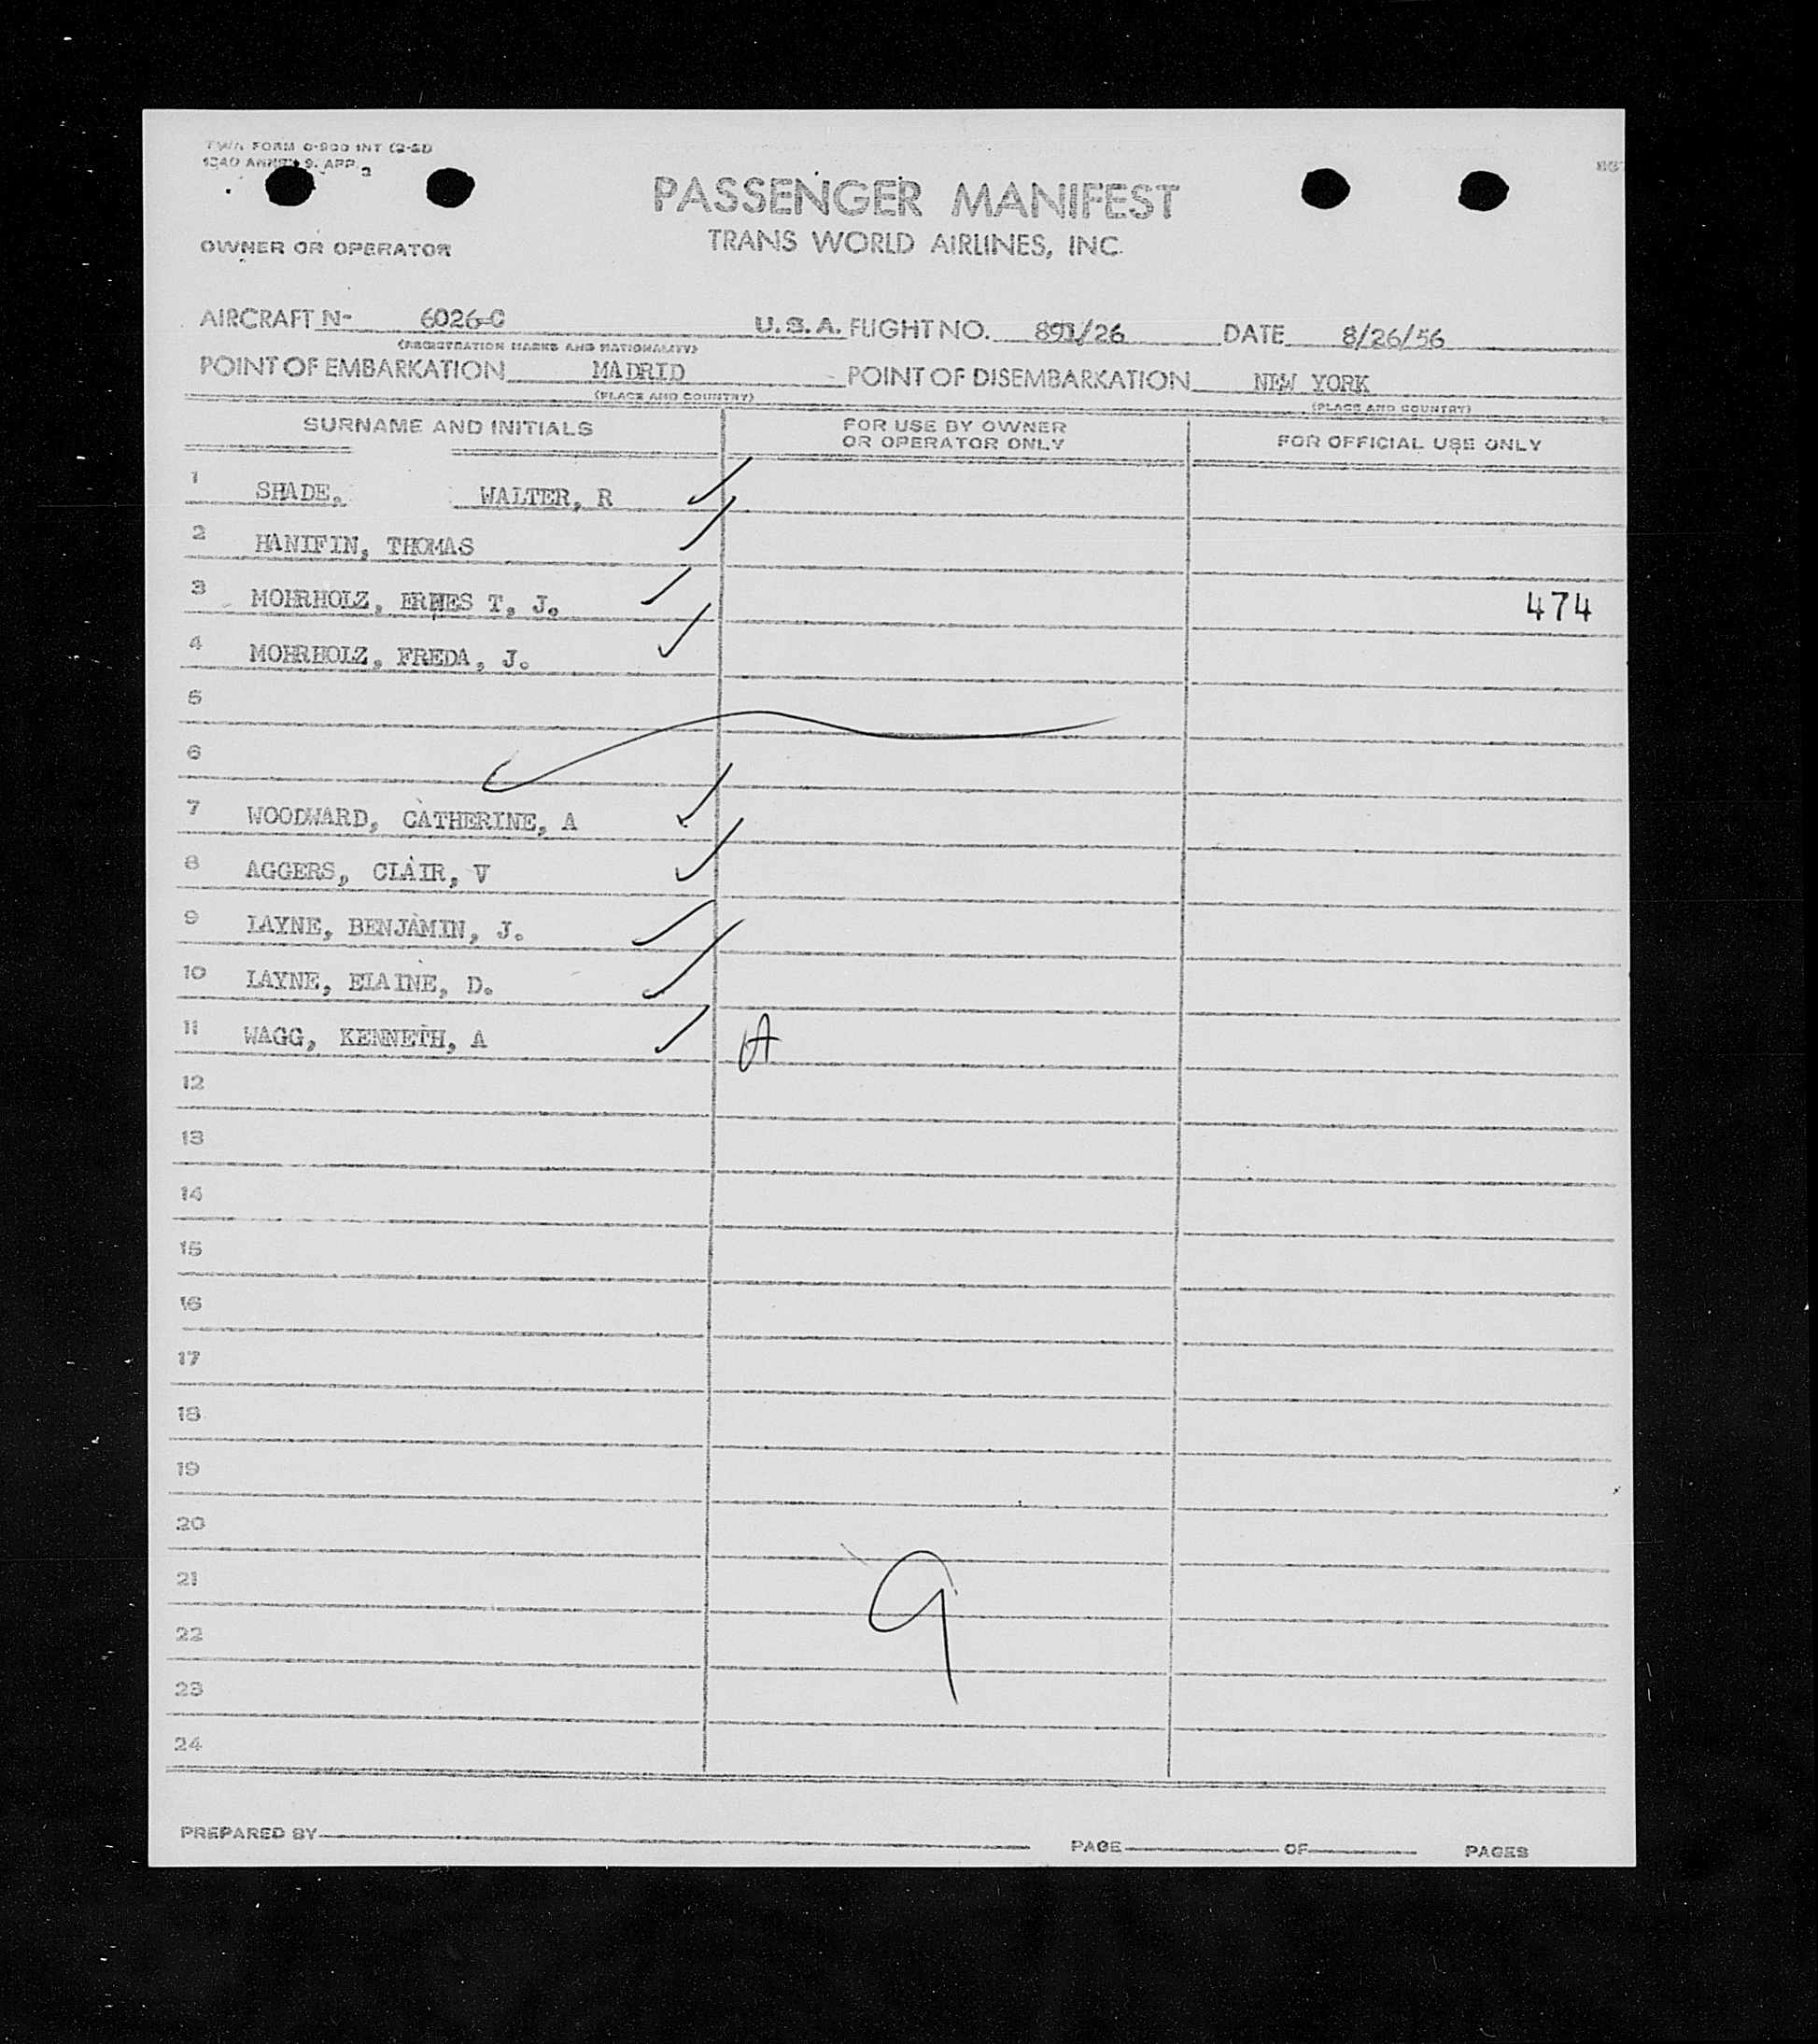 TWA FORM O-900 INT (2-51)
ICAO ANNEX 9, APP. 3
PASSENGER MANIFEST
TRANS WORLD AIRLINES, INC.
OWNER OR OPERATOR
AIRCRAFT N- 6026-C U.S.A. FLIGHT NO. 891/26 DATE 8/26/56
(REGISTRATION MARKS AND NATIONALITY)
POINT OF EMBARKATION MADRID POINT OF DISEMBARKATION NEW YORK
(PLACE AND COUNTRY) (PLACE AND COUNTRY)
SURNAME AND INITIALS FOR USE BY OWNER OR OPERATOR ONLY FOR OFFICIAL USE ONLY
1 SHADE. WALTER, R
2 HANIFIN, THOMAS
3 MOHRHOLZ, ERNES T, J. 474
4 MOHRHOLZ, FREDA, J.
5
6
7 WOODWARD, CATHERINE, A
8 AGGERS, CLAIR, V
9 LAYNE, BENJAMIN, J.
10 LAYNE, ELAINE, D.
11 WAGG, KENNETH, A A
12
13
14
15
16
17
18
19
20
21 9
22
23
24
PREPARED BY PAGE OF PAGES